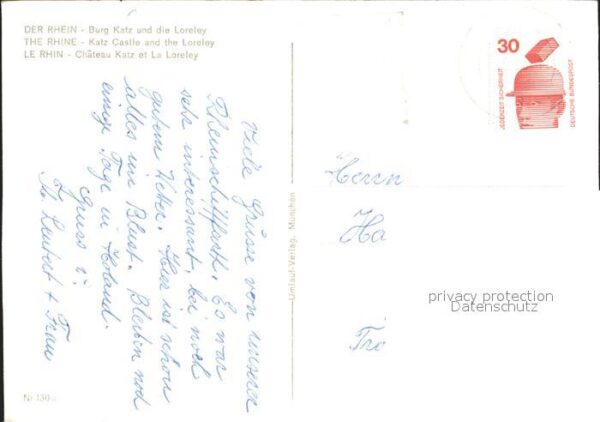 DER RHEIN - Burg Katz und die Loreley
THE RHINE - Katz Castle and the Loreley
LE RHIN - Château Katz et La Loreley
Viele Grüsse von unserer
Rheinschiffarth. Es war
sehr interessant, bei noch
gutem Weter. Hier ist schon
alles im Blust. Bleiben noch
einige Tage in Holand.
Gruss
+ Frau
Umlauf-Verlag, München
30
JEDERZEIT SICHERHEIT
DEUTSCHE BUNDESPOST
Herrn
Ha
privacy protection
Datenschutz